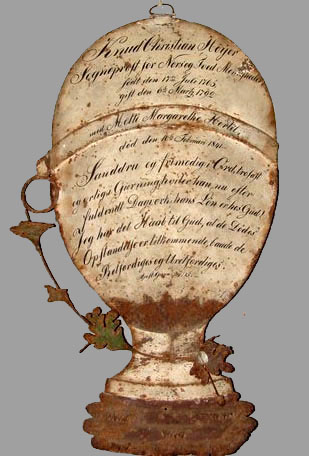 Knud Christian Høyer
Sognepræst for Nørseg Ford Menigheder
født den 17de Juli 1765
gift den 6te Marts 1792
med Metti Margarethe Hertel
død den 10de Februar 1841
Sanddru og frimodig i Ord, trofast
og ærlig i Gierning hviler han nu efter
fuldendt Dag, og hans Løn er hos Gud.
Jeg har det Haab til Gud, at de Dødes
Opstandelse er tilkommende baade de
Retfærdiges og Uretfærdiges.